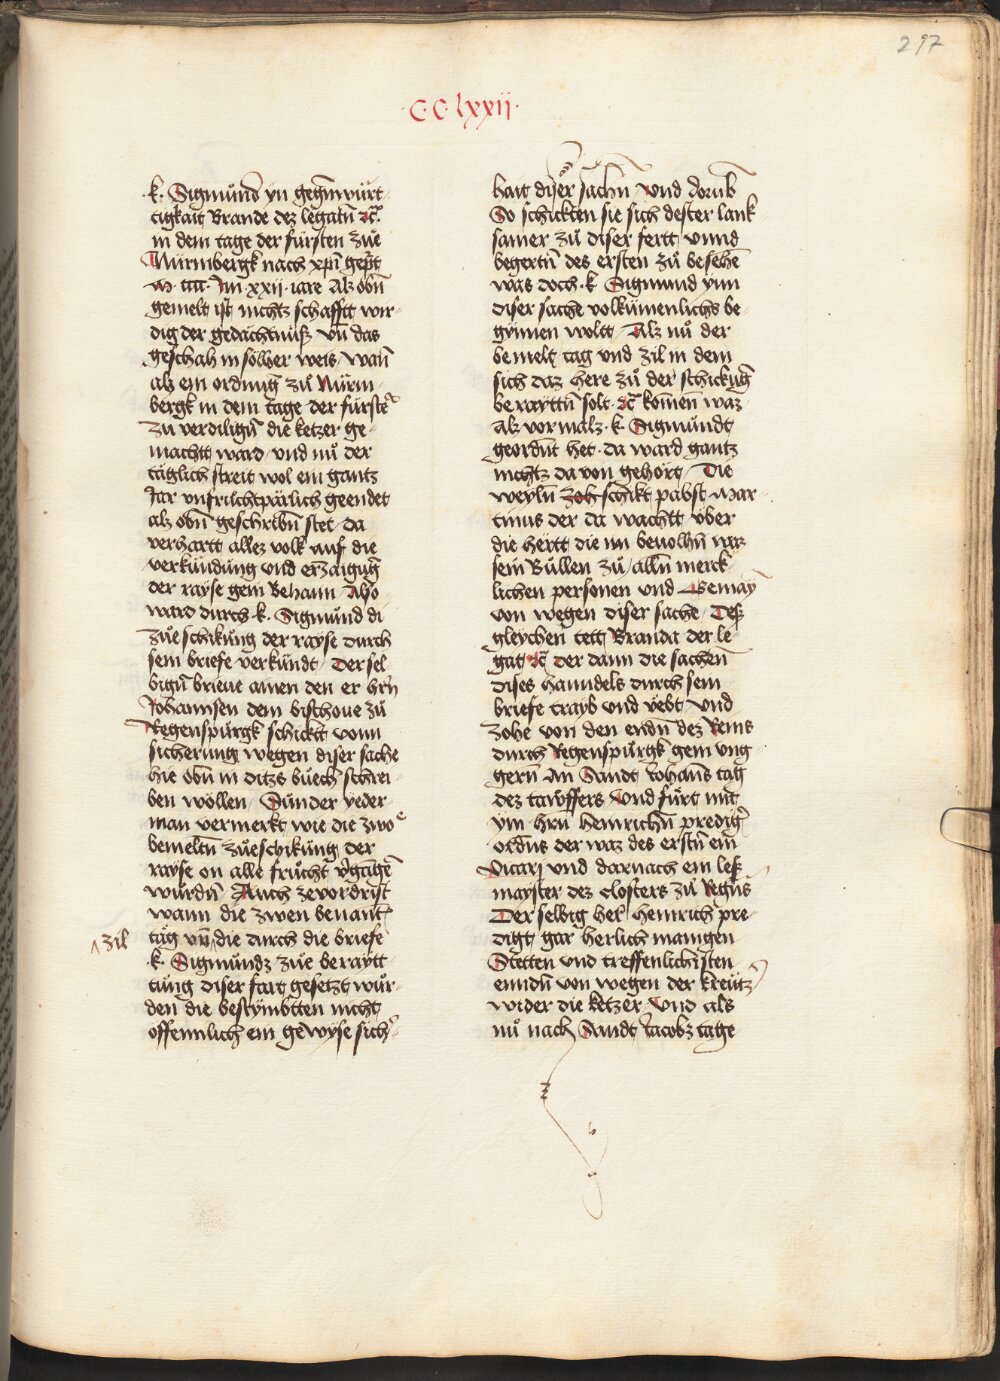 297
·C·C·lxxii·
·k· Sigmund yn gegn̄würt
tigkait Brande dez legatn̄ ꝛc̄.
in dem tage der fürsten zue
Nürmbergk nach xp̄i gep̄t
M· cccc· Im xxii· iare Alz obn̄
gemelt ist nichtz schafftt wir
dig der gedächtnüß vn̄ das
geschah in sölher weis / wan̄
alz ein ordnuḡ zů Nürm
bergk in dem tage der fürstē
zu verdilign̄ die ketzer ge-
machtt ward / vnd nů der
täglich streit wol ein gantz
Jar vnfrüchtpärlich geendet
alz obn̄ geschribn̄ stet / da
verhartt allez volk auf die
verkündung vnd erzaiguḡ
der rayse gein Behaim / Also
ward durch ·k· Sigmund di
züeschikung der rayse durch
sein briefe verkündt / Der sel
bign̄ brieue ainen den er hrn̄
Johannsen dem bischoue zů
Regenspurgk schicktt vonn
sicherung wegen diser sache
hie obn̄ in ditzs bůech schrei
ben wöllen / Sunder yeder
man vermerkt wie die zwo
bemeltn̄ züeschikung der
rayse on alle frůcht v̓gāgē
wurdn̄ / Auch zevordrist
wann die zwen benant̄
zil
tāg vn̄ ^ die durch die briefe
·k· Sigmundz zue beraytt
tung diser fart gesetzt wůr-
den die bestymbtten nicht
offennlich ein gewyse sich̓-
hait diser sachn̄ vnd dorub̄
So schickten sie sich dester lank
samer zů diser fertt / vnnd
begertn̄ des ersten zů besehē
was doch ·k· Sigmund ynn
diser sache volkumenlichs be
gynnen woltt / Alz nů der
bemelt tag vnd zil in dem
sich daz here zů der schickuḡ
berayttn̄ solt ꝛc̄ komen waz
alz vormalz ·k· Sigmundt
geordn̄t het · da ward gantz
nichtz da von gehört / Die
weyln̄ zoh schikt pabst Mar
tinus der da wachtt vber
die hertt die im beuolhn̄ waz
sein Bullen zů / alln̄ merck
lichen personen vnd Gemay̅
von wegen diser sache / Deß
gleychen tett Branda der le-
gat ꝛc̄ der dann die sachen
dises hanndels durch sein
briefe trayb vnd yebt / vnd
zohe von den endn̄ dez Reins
durch Regenspurgk gein vng
gern̄ an Sandt Iohan̄s tag
dez tawffers / vnd fürt mit
ym hrn̄ Heinrichn̄ predig̓
ordn̄s der waz des erstn̄ ein
Vicarj vnd darnach ein leß
mayster dez closters zů Regn̄s
Der selbig hel Heinrich pre-
digt gar herlich manigen
Stetten vnd treffenlichisten
enndn̄ von wegen der kreütz
wider die ketzer / Vnd als
nů nach Sandt Iacobz tage